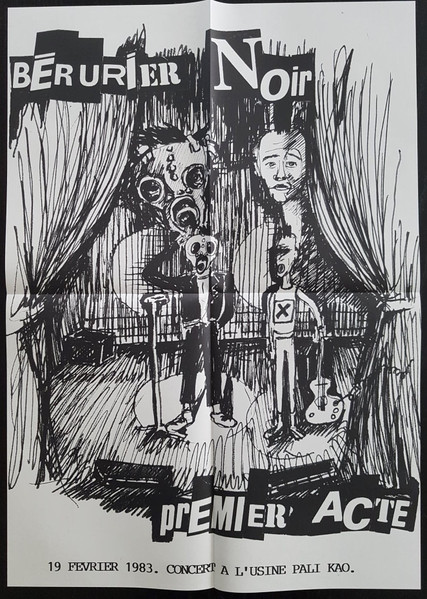 BÉRURIER NOIR
PREMIER ACTE
19 FEVRIER 1983. CONCERT A L'USINE PALI KAO.